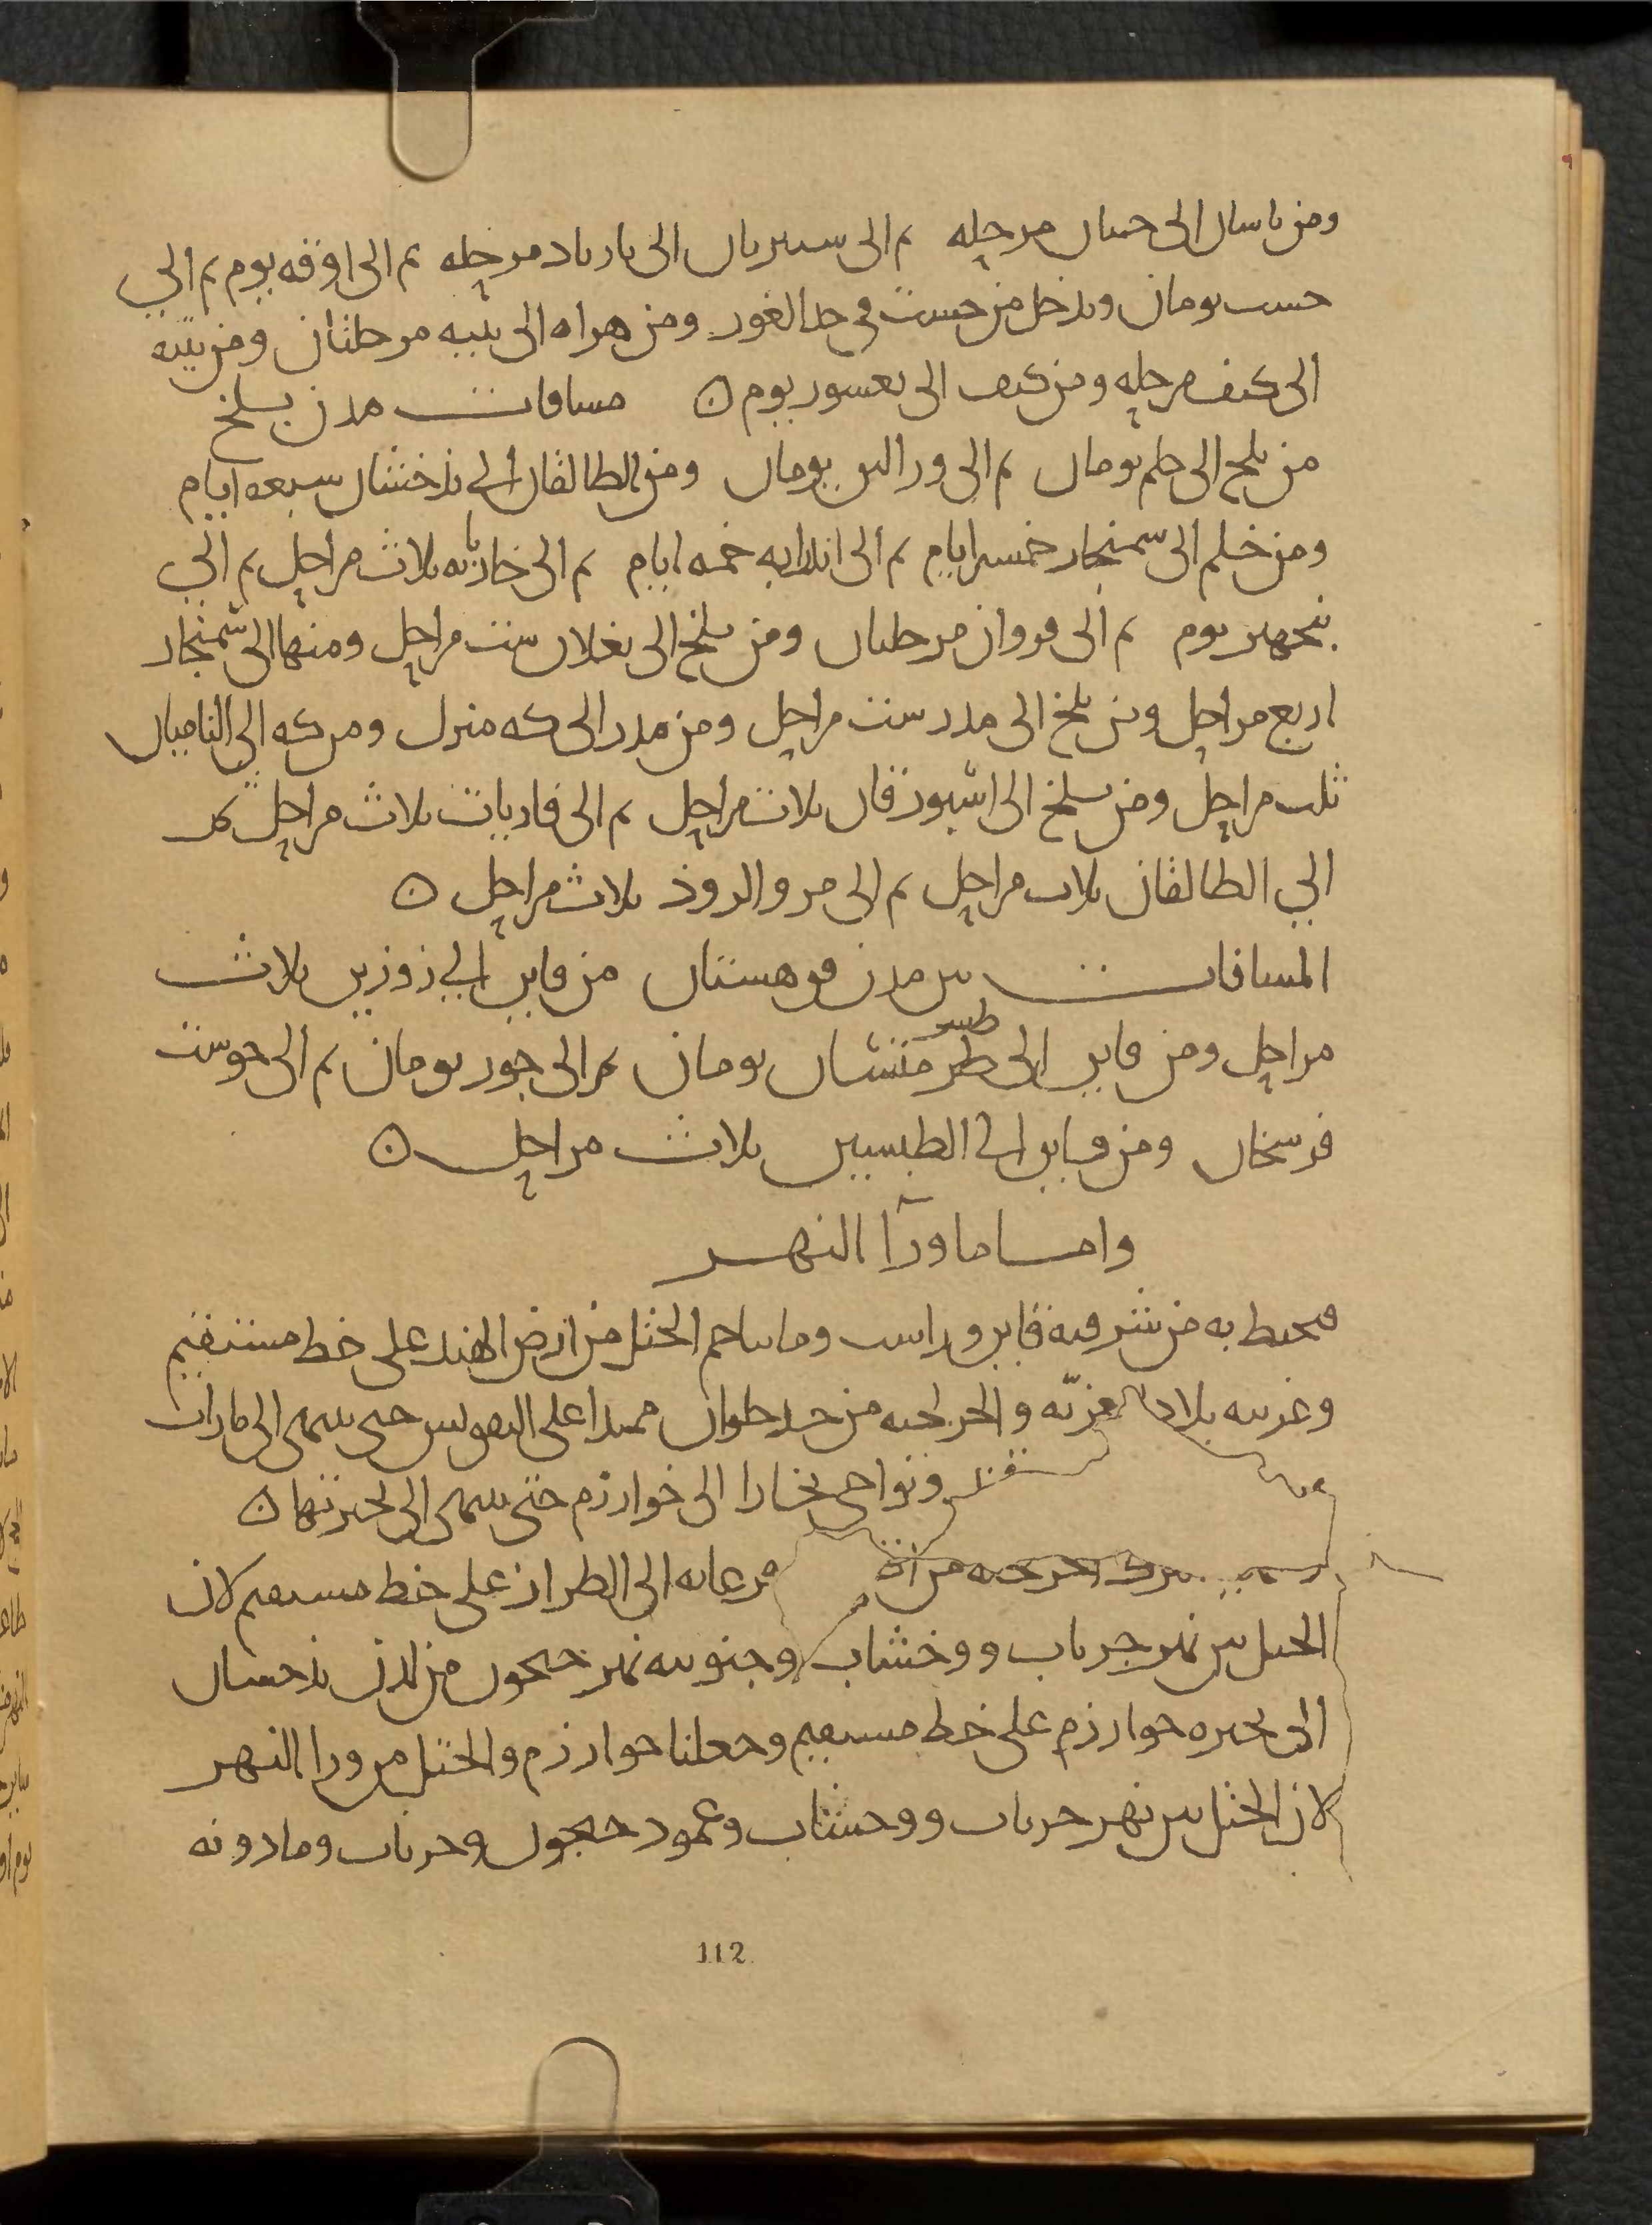 ومن باسان الى حسان مرحله ثم الى سسريان الى باربادمرحله ثم الى اوفه يوم ثم الى
حست يومان ويدخل من حست في حد الغور ومن هراه الى ببنه مرحلتان ومن ببنه
الى كنف مرحله ومن كنف الى بغسور يوم ن مسافات مدن بلخ
من بلخ الى خلم يومان ثم الى ورالين يومان ومن الطالقان الى بذخشان سبعه ايام
ومن خلم الى سمنجار خمس ايام ثم الى اندرابه خمسه ايام ثم الى خاربايه ثلاث مراحل ثم الى
بنجهير يوم ثم الى فروان مرحلتان ومن بلخ الى بغلان ست مراحل ومنها الى سمنجار
اربع مراحل ومن بلخ الى مدر ست مراحل ومن مدر الى كه منزل ومن كه الى الباميان
ثلث مراحل ومن بلخ الى اشبورقان ثلاث مراحل ثم الى فارياب ثلاث مراحل
الى الطالقان ثلاث مراحل ثم الى مرو الروذ ثلاث مراحل ن
المسافات بين مدن قوهستان من قاين الى زوزن ثلاث
مراحل ومن قاين الى طبس يومان ثم الى خور يومان ثم الى خوست
فرسخان ومن قاين الى الطبسين ثلاث مراحل ن
واما ما ورآ النهر
فيحيط به من شرقيه فاير وراست وما يتاخم الختل من ارض الهند على خط مستقيم
وغربيه بلاد الغزيه والخرلخيه من حد طراز ممتدا على التقويس حتى ينتهى الى فاراب
ونواحي بخارا الى خوارزم حتى ينتهى الى بحيرتها ن
فرغانه الى الطراز على خط مستقيم لان
الختل بين نهر جرياب ووخشاب وجنوبيه نهر جيحون من لدن بذخشان
الى بحيره خوارزم على خط مستقيم وجعلنا خوارزم والختل من ورا النهر
لان الختل بين نهر جرياب ووخشاب وعمود جيحون جرياب وما دونه
112